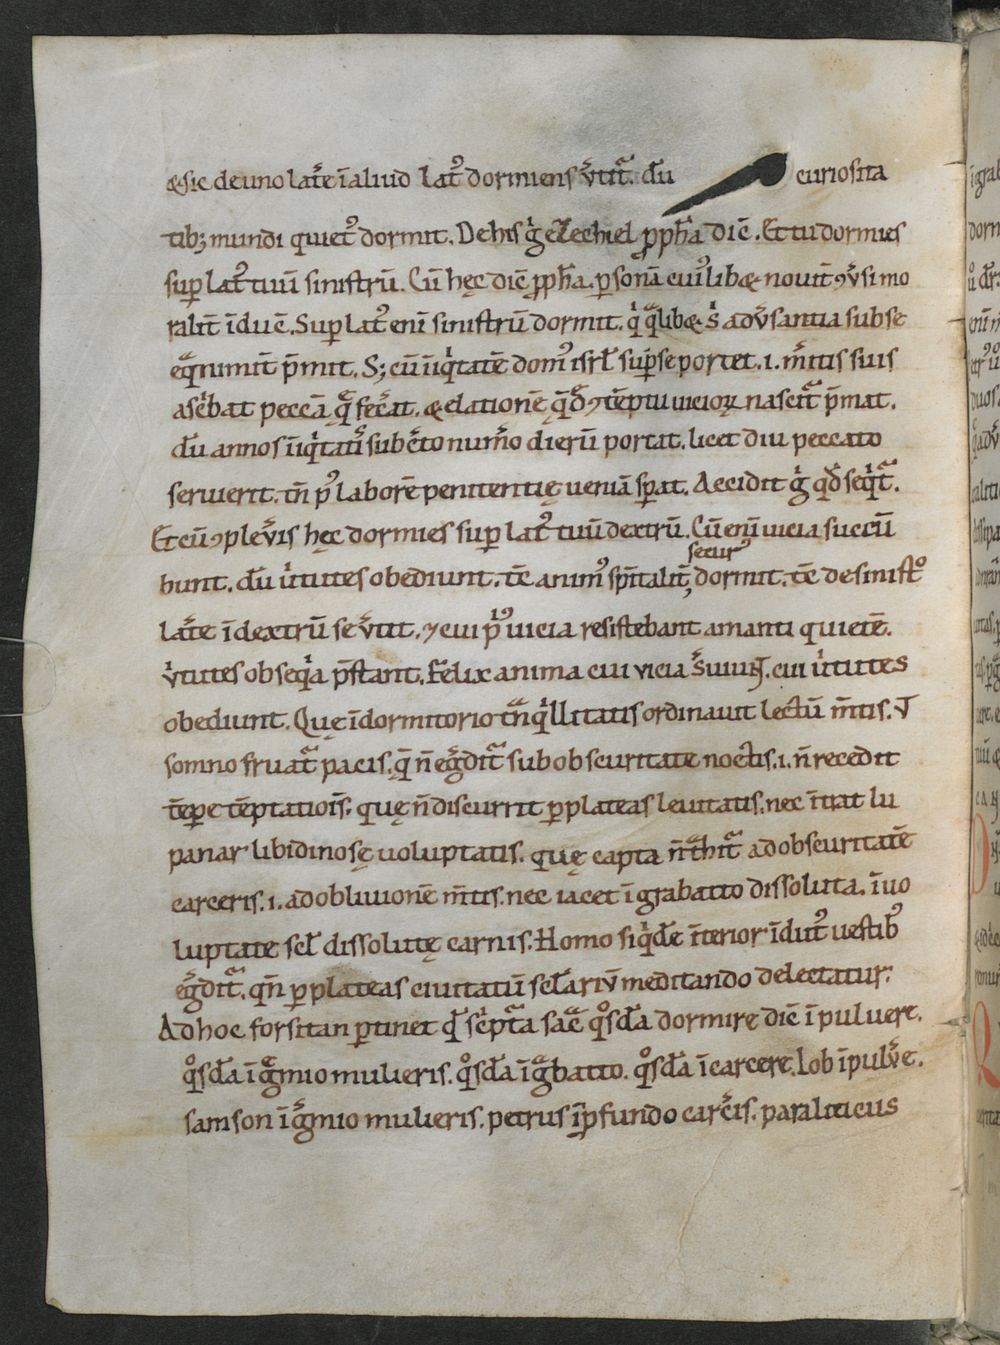 &sic de uno lat̄e ī aliud lat᷒ dormiens v̄tit᷑. dū curiosita
tib; mundi quiet᷒ dormit. De his ḡ ezechiel ꝓph̄a dic̄. Et tu dormies
suꝑ lat᷒ tuū sinistrū. Cū hęc dic̄ ꝓph̄a. ꝑsonā cui᷒lib& novit ꝯv̄si mo
ralit̄ īduc̄. Suꝑ lat᷒ eni sinistrū dormit. qͥ qͣlib& sͥ adv̄santia sub se
p̄mit. S; cū iniqͥtatē dom᷒ isrł suꝑ se portet. .i. m̄itis suis
ascͥbat peccā q̄ fec̄at. & elationē q̄ ꝯtēptu uicioꝝ nascit᷑ p̄mat.
dū annos iniqͥtatū sub c̄to num̄o dierū portat. licet diu peccato
seruierit. tn̄ p᷒ laborē penitentię ueniā sꝑat. Accidit gͥ qđ seqͥt᷑.
Et cū ꝯplev̄is hęc dormies suꝑ lat᷒ tuū dextrū. Cū enī uicia succū
secur᷒
bunt. dū v̄tutes obediunt. tc̄ anim᷒ spiritalit̄ dormit. tc̄ de sinist᷒
lat̄e ī dextrū se v̄tit. ⁊ cui pͥ᷒ uicia resistebant amanti quietē.
v̄tutes obseqͥa p̄stant. Felix anima cui vicia s̄uiunt. cui v̄tutes
obediunt. Que ī dormitorio tn̄qͥllitatis ordinauit lectū m̄tis. ⁊
somno fruat᷑ pacis. q̄ n̄ eḡdit᷑ sub obscuritate noctis. .i. n̄ recedit
tēꝑe tēptatiois̄. quę n̄ discurrit ꝑ plateas leuitatis. nec īt̄rat lu
panar libidinosę uoluptatis. quę capta n̄ t̄hit᷑ ad obscuritatē
carceris. .i. ad obliuionē m̄tis. nec iacet ī grabatto dissoluta. ī uo
luptate scł dissolutę carnis. Homo siqͥdē īterior īdut᷒ uestib᷒
eḡdit᷑. qn̄ ꝑ plateas ciuitatū scłariū meditando delectatur.
Ad hoc forsitan ꝑtinet qđ scͥpt᷑a sac̄ qͦsdā dormire dic̄ ī puluere.
qͦsdā ī ḡmio mulieris. qͦsdā ī gͣbatto. qͦsdā ī carcere. Iob ī pulv̄e.
samson ī ḡmio mulieris. petrus ī ꝓfundo carc̄is. paraliticus